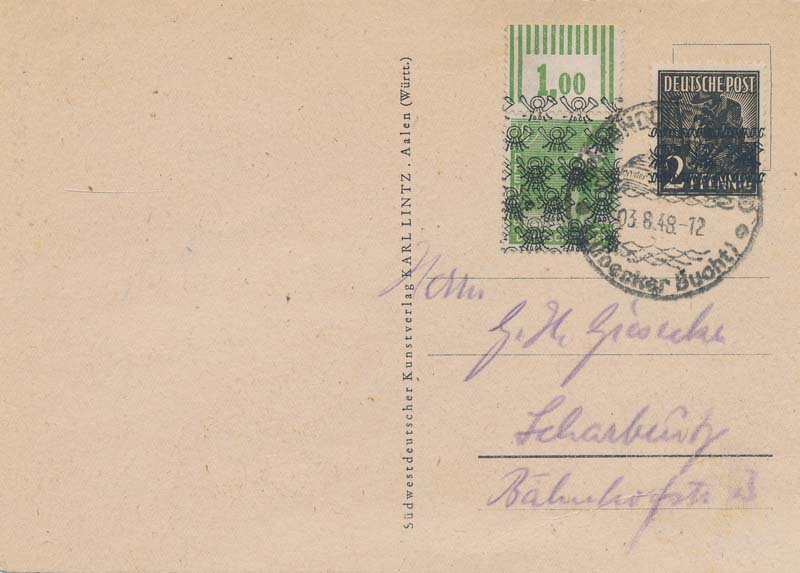 Südwestdeutscher Kunstverlag KARL LINTZ . Aalen (Württ.)
1,00
DEUTSCHE POST
2 PFENNIG
03.8.48.-12
Bucht)
Herrn
G. H. Giesecke
Scharbeutz
Bahnhofstr